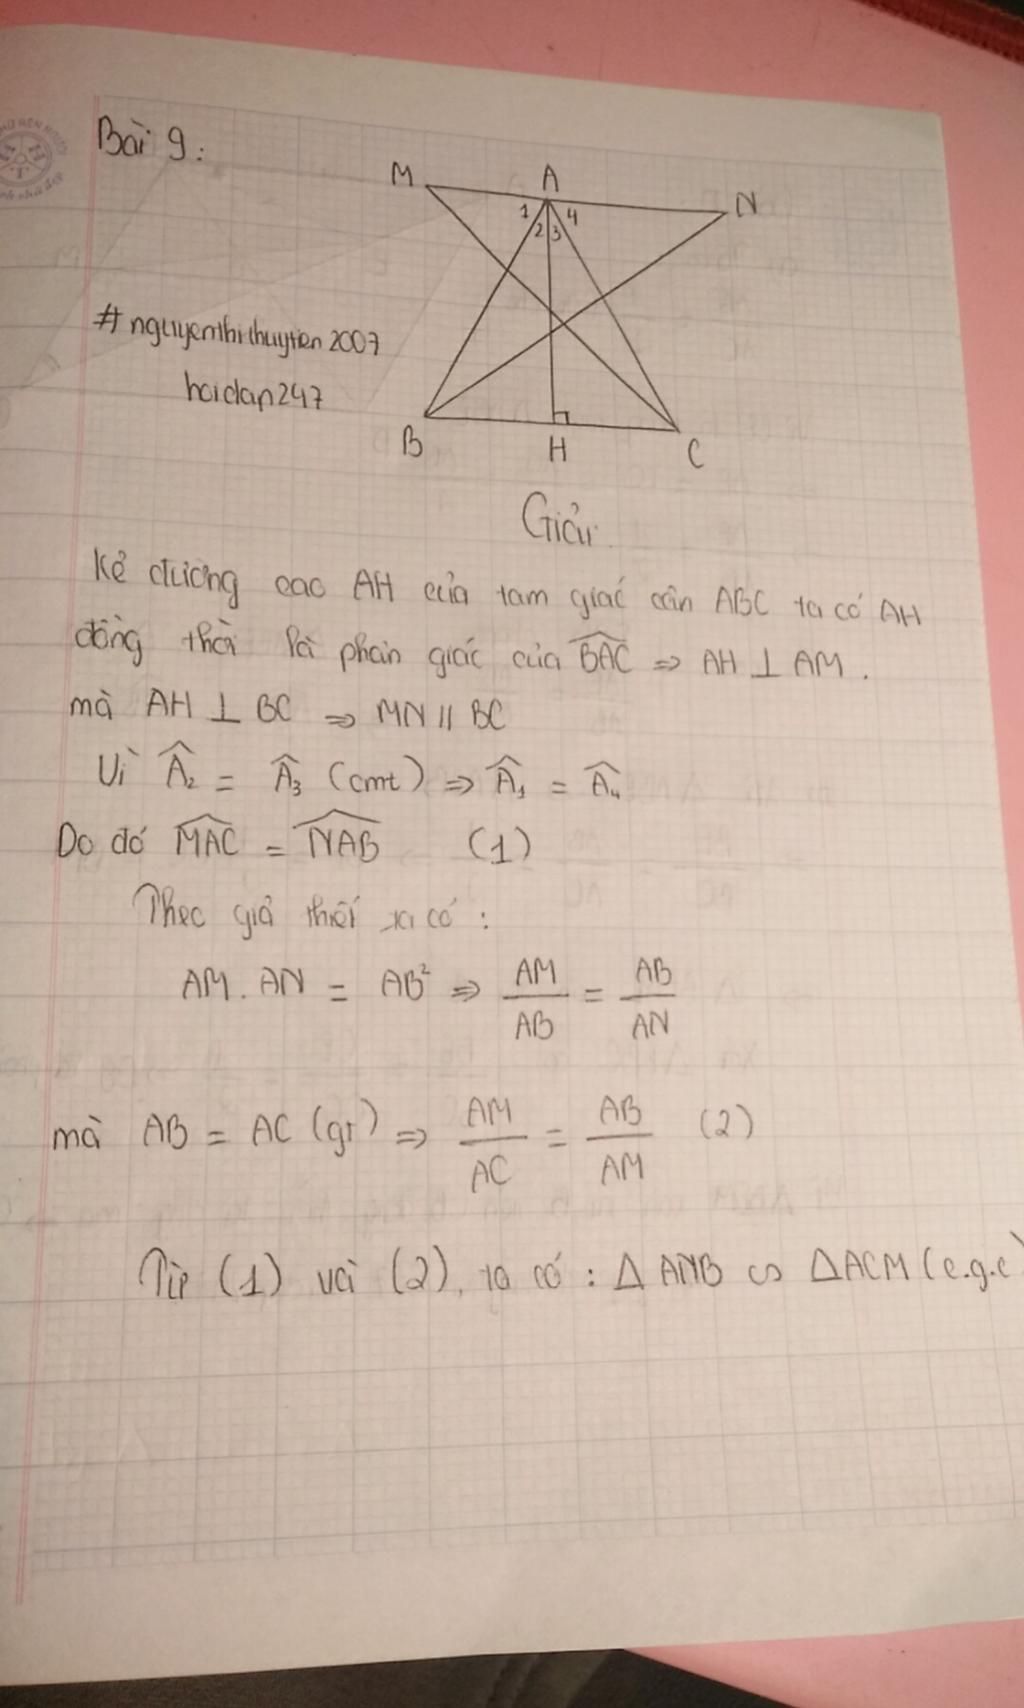 Bài 9:
M A N
1 4
2 3
#nguyenthithuytien2007
hoidap247
B H C
Giải
Kẻ đường cao AH của tam giác cân ABC ta có AH
đồng thời là phân giác của \widehat{BAC} => AH ⊥ AM.
mà AH ⊥ BC => MN // BC
Vì \widehat{A}₂ = \widehat{A}₃ (cmt) => \widehat{A}₁ = \widehat{A}₄
Do đó \widehat{MAC} = \widehat{NAB} (1)
Theo giả thiết ta có:
AM . AN = AB² => AM/AB = AB/AN
mà AB = AC (gt) => AM/AC = AB/AM (2)
Từ (1) và (2), ta có : Δ ANB ∽ ΔACM (c.g.c)